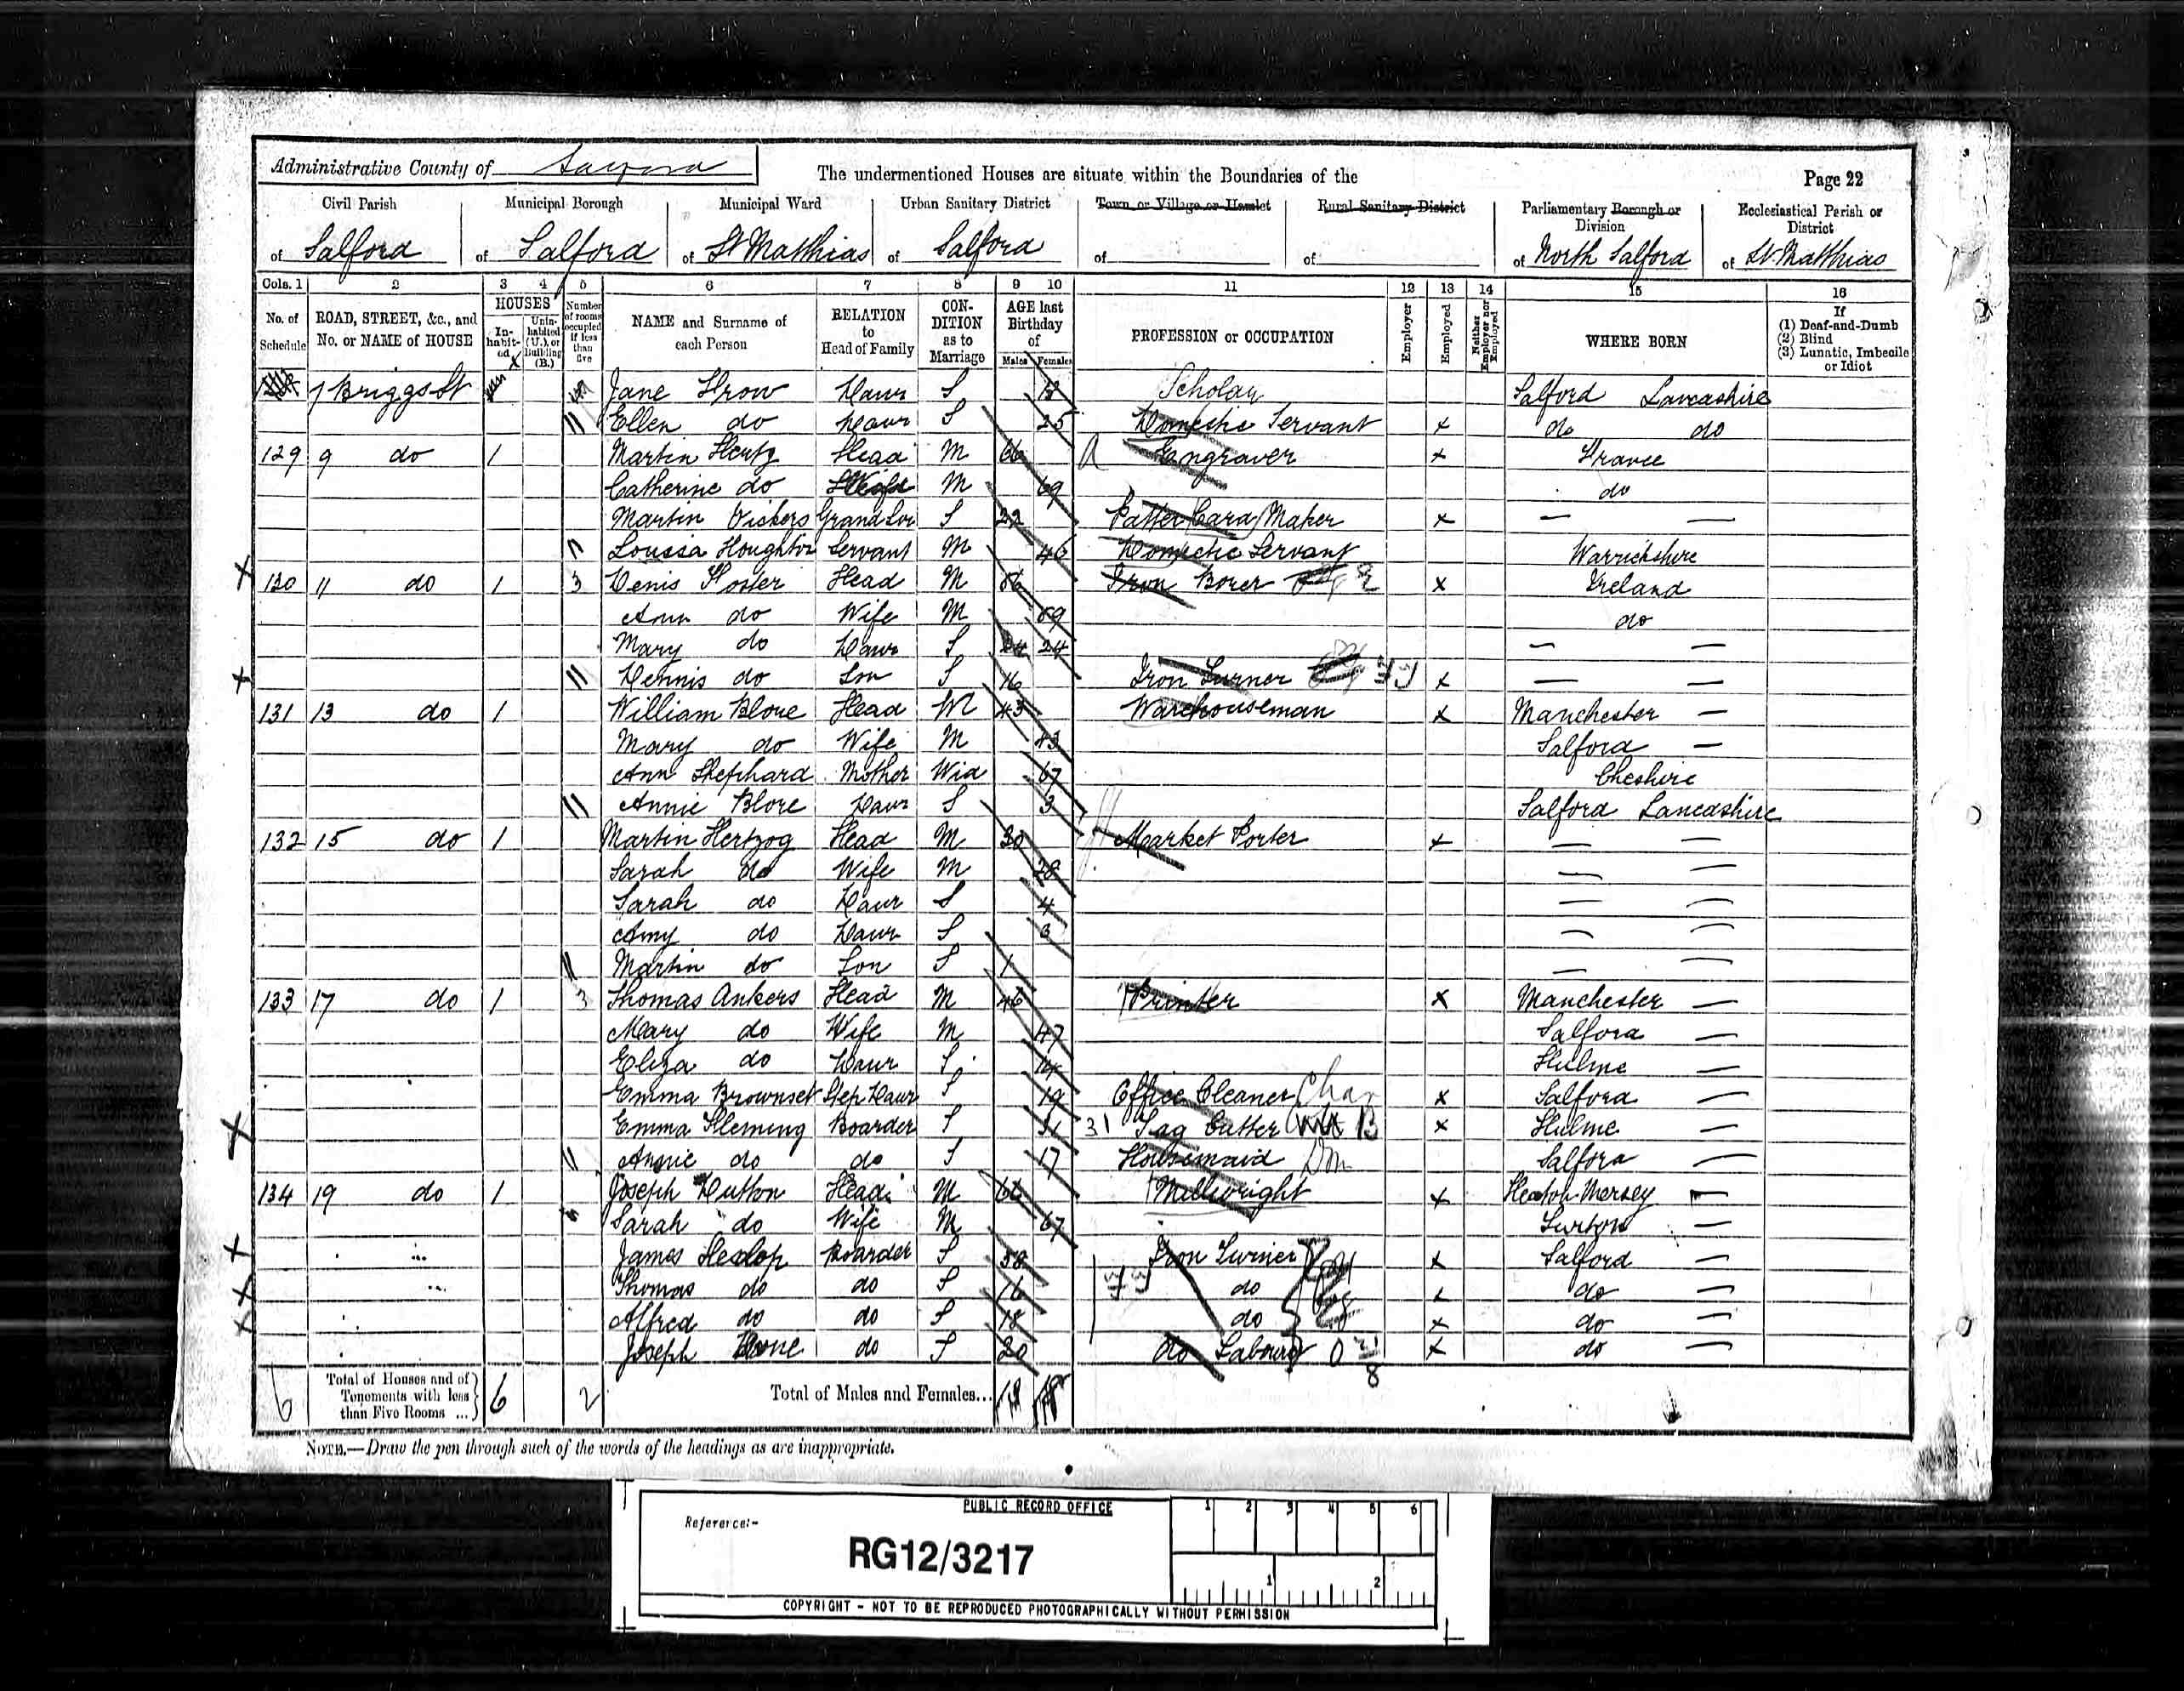 Administrative County of Salford
The undermentioned Houses are situate within the Boundaries of the
Page 22
Civil Parish of Salford
Municipal Borough of Salford
Municipal Ward of St Matthias
Urban Sanitary District of Salford
Town or Village or Hamlet of
Rural Sanitary District of
Parliamentary Borough or Division of North Salford
Ecclesiastical Parish or District of St Matthias
Cols. 1 2 3 4 5 6 7 8 9 10 11 12 13 14 15 16
No. of Schedule
ROAD, STREET, &c., and No. or NAME of HOUSE
HOUSES
In-habit-ed
Unin-habited (U.), or Building (B.)
Number of rooms occupied if less than five
NAME and Surname of each Person
RELATION to Head of Family
CON-DITION as to Marriage
AGE last Birthday of
Males Females
PROFESSION or OCCUPATION
Employer
Employed
Neither Employer nor Employed
WHERE BORN
If
(1) Deaf-and-Dumb
(2) Blind
(3) Lunatic, Imbecile or Idiot
7 Briggs St Jane Daur S 13 Scholar Salford Lancashire
Ellen do Daur S 25 Domestic Servant x do do
129 9 do 1 Martin Hertz Head M 66 Engraver x France
Catherine do Wife M 69 do
Martin Vickers Grand Son S 22 Patter Card Maker x — —
Louisa Houghton Servant M 46 Domestic Servant Warrickshire
130 11 do 1 3 Denis Foster Head M 56 Iron Borer x Ireland
Ann do Wife M 59 do
Mary do Daur S 24 — —
Dennis do Son S 16 Iron Turner x — —
131 13 do 1 William Blore Head M 43 Warehouseman x Manchester —
Mary do Wife M 43 Salford —
Ann Shephard Mother Wid 67 Cheshire
Annie Blore Daur S 3 Salford Lancashire
132 15 do 1 Martin Hertzog Head M 30 Market Porter x — —
Sarah do Wife M 28 — —
Sarah do Daur S 4 — —
Amy do Daur S 3 — —
Martin do Son S 1 — —
133 17 do 1 3 Thomas Ankers Head M 46 Printer x Manchester —
Mary do Wife M 47 Salford —
Eliza do Daur S 14 Hulme —
Emma Brownset Step Daur S 19 Office Cleaner Char x Salford —
Emma Fleming Boarder S 31 Tag Cutter x Hulme —
Annie do do S 17 Housemaid Dom Salford —
134 19 do 1 Joseph Dutton Head M 66 Millwright x Heaton Mersey —
Sarah do Wife M 67 —
James Heslop Boarder S 58 Iron Turner x Salford —
Thomas do do S 16 do x do —
Alfred do do S 18 do x do —
Joseph do S 20 do Labourer x do —
6 Total of Houses and of Tenements with less than Five Rooms ... 6 2 Total of Males and Females...
NOTE.—Draw the pen through such of the words of the headings as are inappropriate.
PUBLIC RECORD OFFICE
Reference:-
RG12/3217
1 2 3 4 5 6
1 2
COPYRIGHT - NOT TO BE REPRODUCED PHOTOGRAPHICALLY WITHOUT PERMISSION